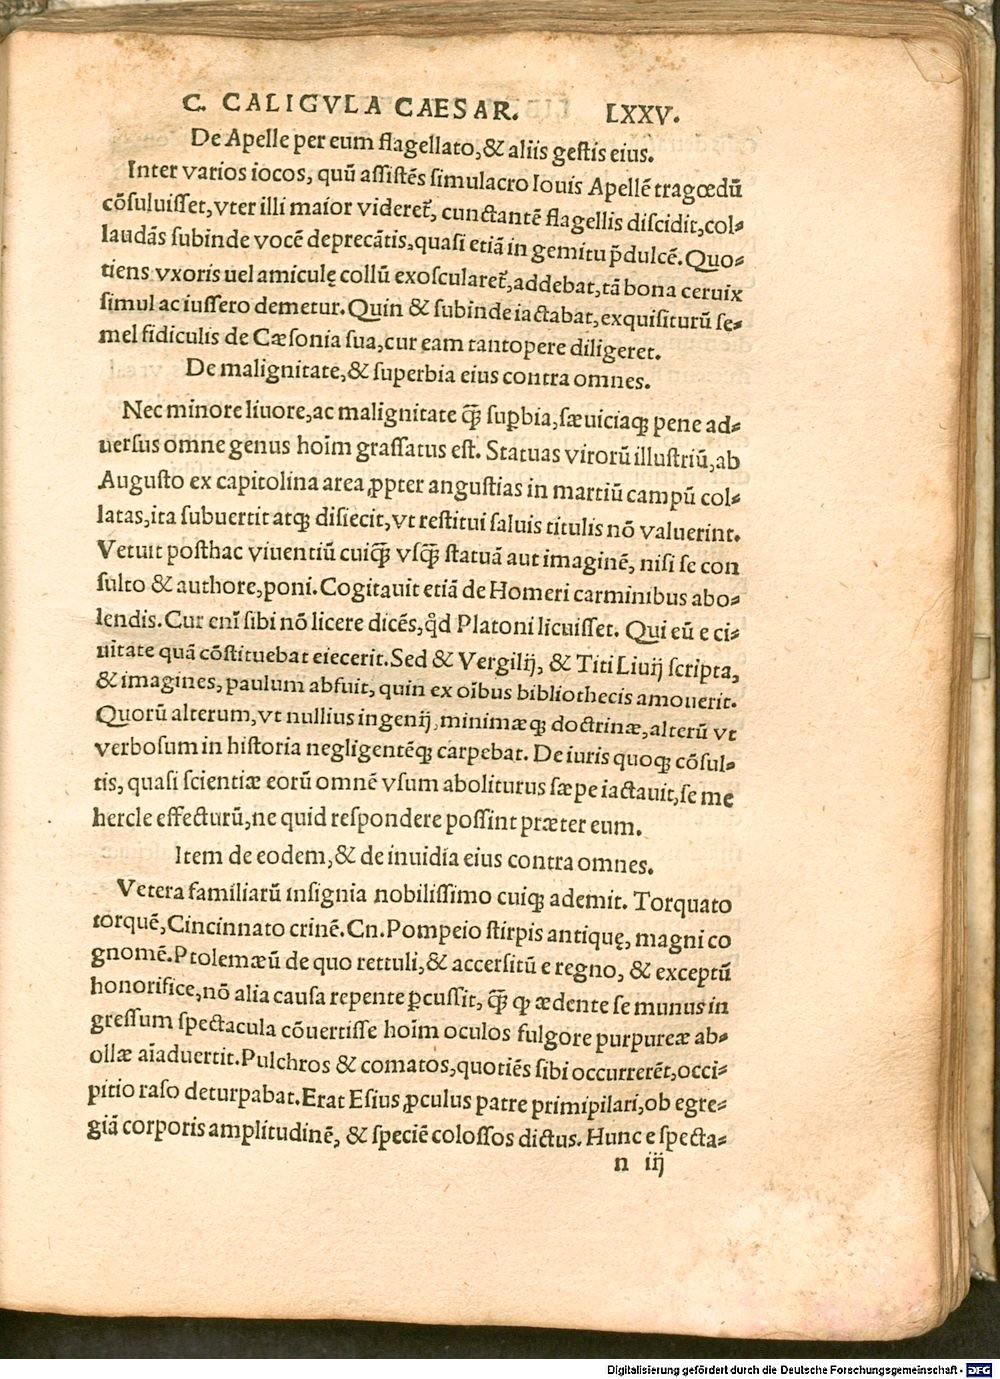 C. CALIGVLA CAESAR. LXXV.
De Apelle per eum flagellato,& aliis gestis eius.
Inter varios iocos, quū assistēs simulacro Iouis Apellē tragœdū
cōsuluisset,vter illi maior videret᷑, cunctantē flagellis discidit,col⸗
laudās subinde vocē deprecātis,quasi etiā in gemitu p̄dulcē.Quo⸗
tiens vxoris uel amiculę collū exoscularet᷑,addebat,tā bona ceruix
simul ac iussero demetur.Quin & subinde iactabat,exquisiturū se⸗
mel fidiculis de Cæsonia sua,cur eam tantopere diligeret.
De malignitate,& superbia eius contra omnes.
Nec minore liuore,ac malignitate q̄̃ suꝑbia,sæuiciaqꝫ pene ad⸗
uersus omne genus hoīm grassatus est. Statuas virorū illustriū,ab
Augusto ex capitolina area ꝓpter angustias in martiū campū col⸗
latas,ita subuertit atqꝫ disiecit,vt restitui saluis titulis nō valuerint.
Vetuit posthac viuentiū cuiq̄̃ vsq̄̃ statuā aut imaginē, nisi se con
sulto & authore,poni.Cogitauit etiā de Homeri carminibus abo⸗
lendis.Cur enī sibi nō licere dicēs,qd̓ Platoni licuisset. Qui eū e ci⸗
uitate quā cōstituebat eiecerit.Sed & Vergilij, & Titi Liuij scripta,
& imagines, paulum abfuit, quin ex oībus bibliothecis amouerit.
Quorū alterum,vt nullius ingenij,minimæqꝫ doctrinæ,alterū vt
verbosum in historia negligentēqꝫ carpebat. De iuris quoqꝫ cōsul⸗
tis, quasi scientiæ eorū omnē vsum aboliturus sæpe iactauit,se me
hercle effecturū,ne quid respondere possint præter eum.
Item de eodem,& de inuidia eius contra omnes.
Vetera familiarū insignia nobilissimo cuiqꝫ ademit. Torquato
torquē,Cincinnato crinē.Cn.Pompeio stirpis antiquę, magni co
gnomē.Ptolemæū de quo rettuli,& accersitū e regno, & exceptū
honorifice,nō alia causa repente ꝑcussit, q̄̃ ꝙ ædente se munus in
gressum spectacula cōuertisse hoīm oculos fulgore purpureæ ab⸗
ollæ aīaduertit.Pulchros & comatos,quotiēs sibi occurrerēt,occi⸗
pitio raso deturpabat.Erat Esius ꝓculus patre primipilari,ob egre⸗
giā corporis amplitudinē, & speciē colossos dictus. Hunc e specta⸗
n iij
Digitalisierung gefördert durch die Deutsche Forschungsgemeinschaft - DFG